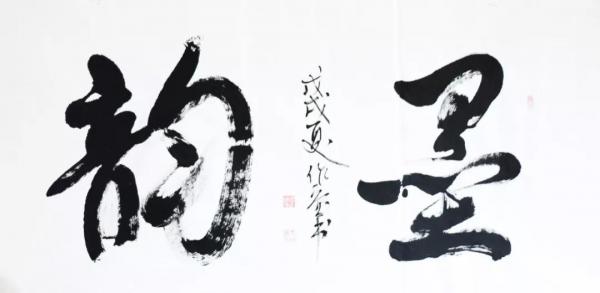 墨韵
戊戌夏